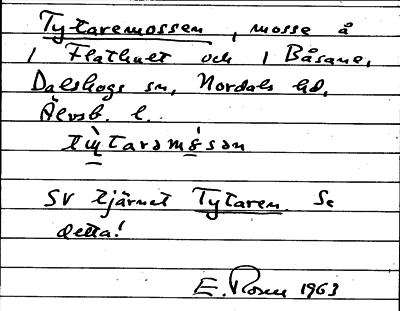 Tytaremossen, mosse å
1 Flathult och 1 Båsane,
Dalskogs sn, Nordals hd,
Älvsb. l.
SV tjärnet Tytaren. Se
detta!
E. Rosen 1963